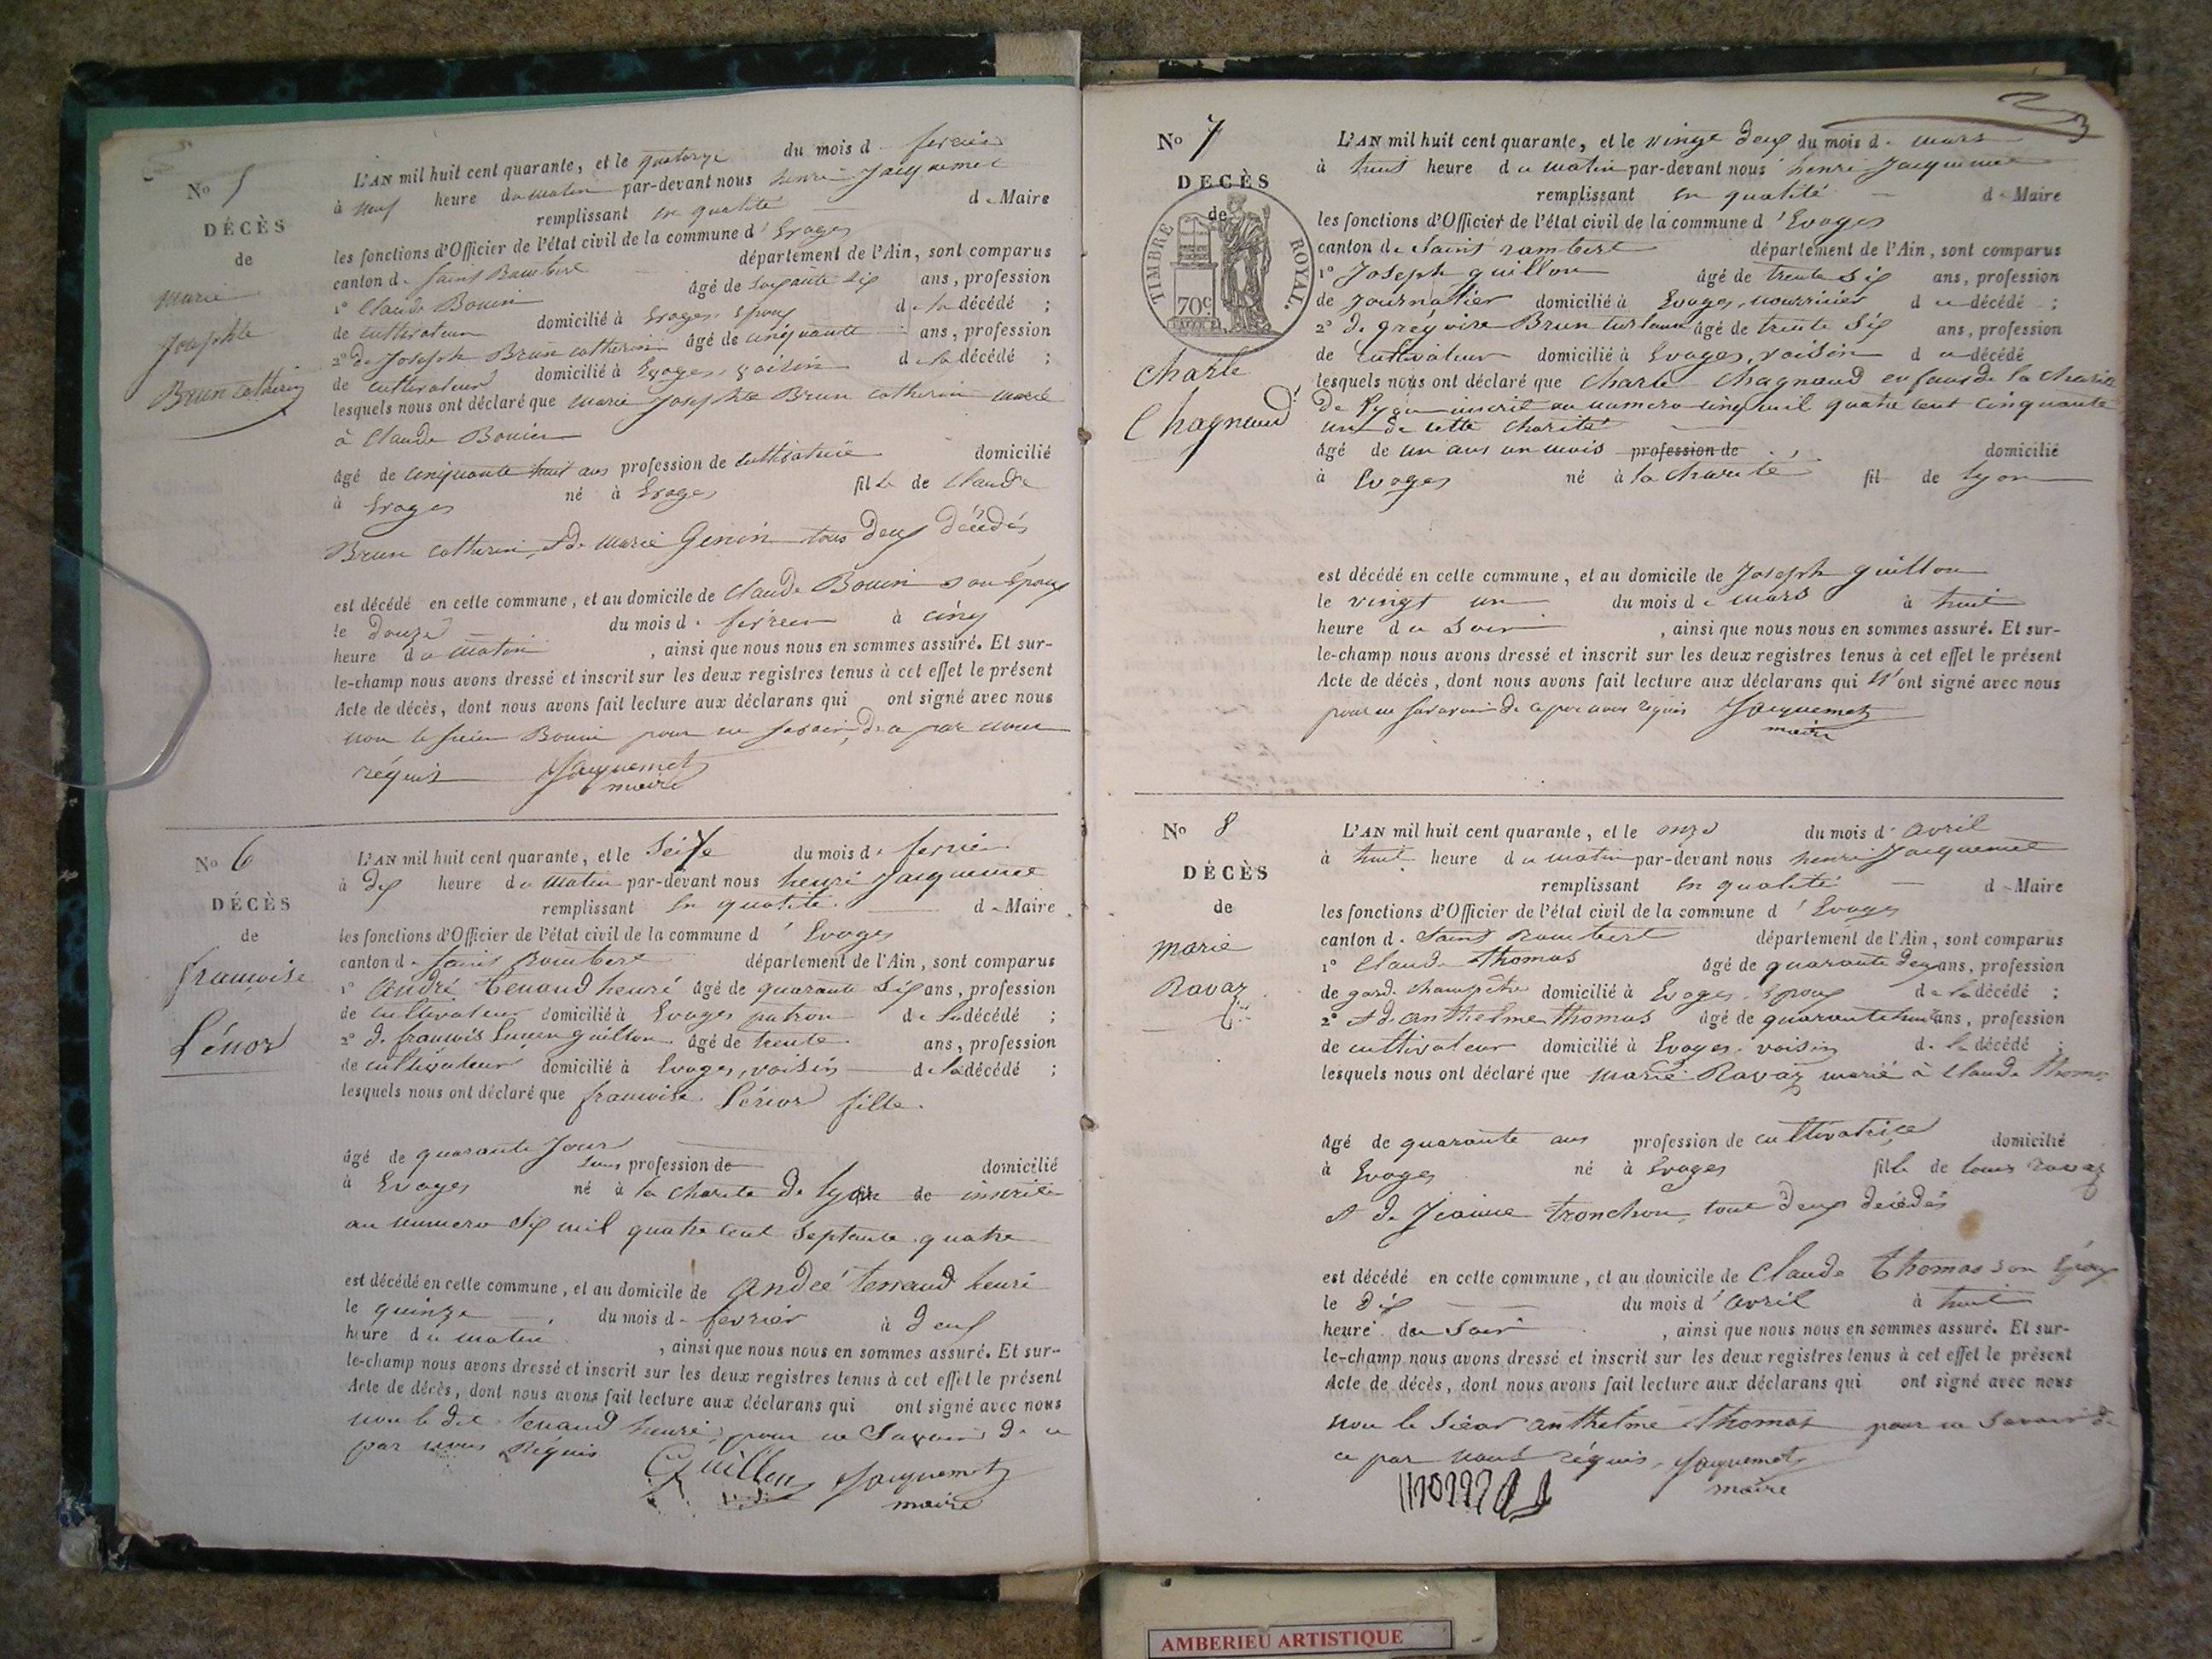 No 5
DÉCÈS
de
marie
Josephte
Brun Catherin
L'AN mil huit cent quarante, et le quatorze du mois d. fevrier
à neuf heure du matin par-devant nous henri Jacquemet
remplissant en qualité d. Maire
les fonctions d'Officier de l'état civil de la commune d' Evoges
canton d. Saint Rambert département de l'Ain, sont comparus
1º Claude Bouin âgé de soixante six ans, profession
de cultivateur domicilié à Evoges Epoux d. la décédé ;
2º d. Joseph Brun Catherin âgé de cinquante ans, profession
de cultivateur domicilié à Evoges, voisin d. la décédé ;
lesquels nous ont déclaré que marie Josephte Brun Catherin marié
à Claude Bouin
âgé de cinquante huit ans profession de cultivatrice domicilié
à Evoges né à Evoges fille de Claude
Brun Catherin, et de marie Genin tous deux décédés
est décédé en cette commune, et au domicile de Claude Bouin son Epoux
le douze du mois d. fevrier à cinq
heure du matin, ainsi que nous nous en sommes assuré. Et sur-
le-champ nous avons dressé et inscrit sur les deux registres tenus à cet effet le présent
Acte de décès, dont nous avons fait lecture aux déclarans qui ont signé avec nous
non le sieur Bouin pour ne savoir, de ce par nous
réquis Jacquemet
maire
No 6
DÉCÈS
de
francoise
Lénor
L'AN mil huit cent quarante, et le Seize du mois d. fevrier
à dix heure du matin par-devant nous henri Jacquemet
remplissant en qualité d. Maire
les fonctions d'Officier de l'état civil de la commune d' Evoges
canton d. Saint Rambert département de l'Ain, sont comparus
1º André tenand henri âgé de quarante Six ans, profession
de cultivateur domicilié à Evoges patron d. la décédé ;
2º d. francois Guillon âgé de trente ans, profession
de cultivateur domicilié à Evoges, voisin d. la décédé ;
lesquels nous ont déclaré que francoise Lénor fille.
âgé de quarante Jour sans profession de domicilié
à Evoges né à la charité de lyon de inscrite
au numero Six mil quatre cent Septante quatre
est décédé en cette commune, et au domicile de André tenand henri
le quinze du mois d. fevrier à deux
heure du matin, ainsi que nous nous en sommes assuré. Et sur-
le-champ nous avons dressé et inscrit sur les deux registres tenus à cet effet le présent
Acte de décès, dont nous avons fait lecture aux déclarans qui ont signé avec nous
non le dit tenand henri, pour ne Savoir, de ce
par nous Réquis Guillon Jacquemet
maire
No 7
DECÈS
de
TIMBRE ROYAL.
70c
charle
Chagnaud
L'AN mil huit cent quarante, et le vingt deux du mois d. mars
à huit heure du matin par-devant nous henri Jacquemet
remplissant en qualité d. Maire
les fonctions d'Officier de l'état civil de la commune d' Evoges
canton de Saint rambert département de l'Ain, sont comparus
1º Joseph guillon âgé de trente Six ans, profession
de Journalier domicilié à Evoges, nourricier d u décédé ;
2º d. grégoire Brun âgé de trente Six ans, profession
de cultivateur domicilié à Evoges, voisin d u décédé
lesquels nous ont déclaré que charle Chagnaud enfant de la charité
De Lyon inscrit au numero cinq mil quatre cent cinquante
un de cette charité
âgé de un ans un mois profession de domicilié
à Evoges né à la charité fil de lyon
est décédé en cette commune, et au domicile de Joseph guillon
le vingt un du mois de mars à huit
heure du Soir, ainsi que nous nous en sommes assuré. Et sur-
le-champ nous avons dressé et inscrit sur les deux registres tenus à cet effet le présent
Acte de décès, dont nous avons fait lecture aux déclarans qui n'ont signé avec nous
pour ne savoir de ce par nous requis Jacquemet
maire
No 8
DÉCÈS
de
marie
Ravaz
L'AN mil huit cent quarante, et le onze du mois d' avril
à huit heure du matin par-devant nous henri Jacquemet
remplissant en qualité d. Maire
les fonctions d'Officier de l'état civil de la commune d' Evoges
canton d. Saint Rambert département de l'Ain, sont comparus
1º Claude Thomas âgé de quarante deux ans, profession
de gard. champêtre domicilié à Evoges, Epoux d. la décédé ;
2º et d. anthelme thomas âgé de quarante huit ans, profession
de cultivateur domicilié à Evoges, voisin d. la décédé ;
lesquels nous ont déclaré que marie Ravaz marié à Claude thomas
âgé de quarante ans profession de cultivatrice domicilié
à Evoges né à Evoges fille de louis ravaz
et de Jeanne tronchon, tout deux décédés
est décédé en cette commune, et au domicile de Claude Thomas son Epoux
le dix du mois d' avril à huit
heure du Soir, ainsi que nous nous en sommes assuré. Et sur-
le-champ nous avons dressé et inscrit sur les deux registres tenus à cet effet le présent
Acte de décès, dont nous avons fait lecture aux déclarans qui ont signé avec nous
non le Sieur anthelme thomas pour ne Savoir de
ce par nous réquis, Jacquemet
maire
AMBERIEU ARTISTIQUE